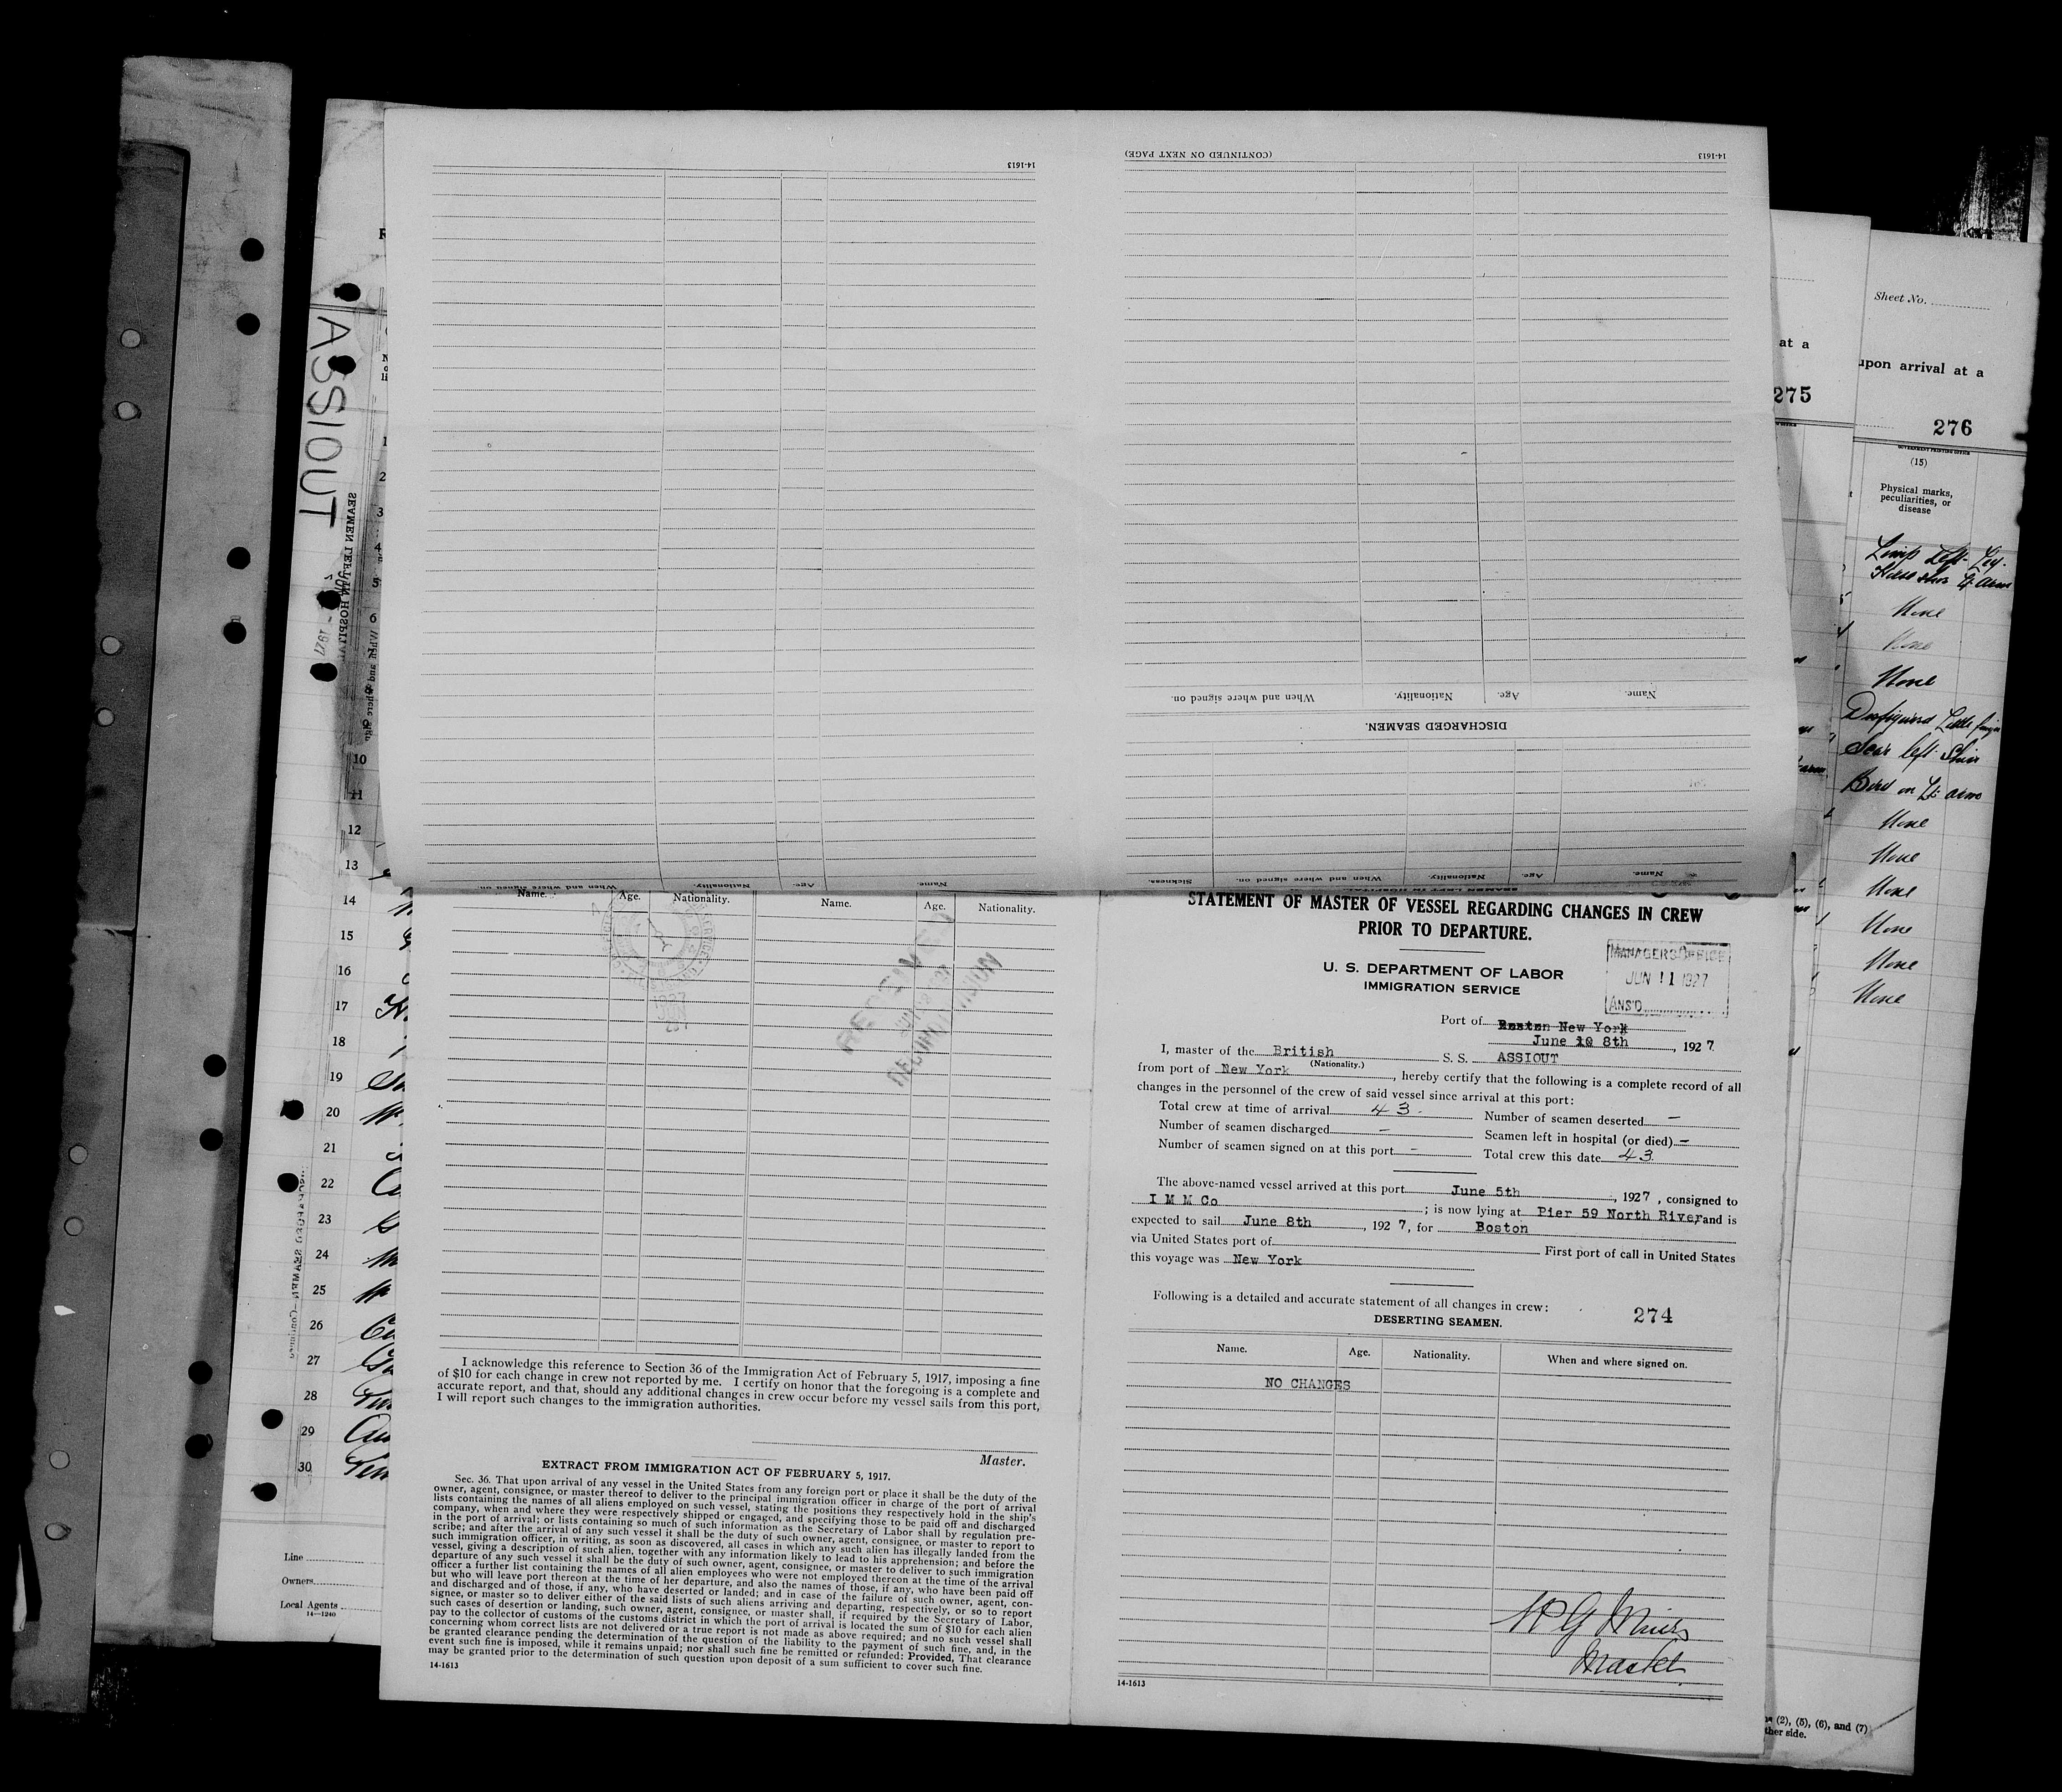 14-1613
(CONTINUED ON NEXT PAGE)
14-1613
ASSIOUT
SEAMEN LEFT IN HOSPITAL
Name. Age. Nationality. When and where signed on.
DISCHARGED SEAMEN.
Name. Age. Nationality. When and where signed on.
Name. Age. Nationality. When and where signed on. Sickness.
Name. Age. Nationality. Name. Age. Nationality.
STATEMENT OF MASTER OF VESSEL REGARDING CHANGES IN CREW
PRIOR TO DEPARTURE.
U. S. DEPARTMENT OF LABOR
IMMIGRATION SERVICE
MANAGERS OFFICE
JUN 11 1927
ANS'D
Port of Boston New York
June 10 8th, 1927.
I, master of the British S. S. ASSIOUT
(Nationality.)
from port of New York, hereby certify that the following is a complete record of all
changes in the personnel of the crew of said vessel since arrival at this port:
Total crew at time of arrival 43. Number of seamen deserted —
Number of seamen discharged — Seamen left in hospital (or died) —
Number of seamen signed on at this port — Total crew this date 43.
The above-named vessel arrived at this port June 5th, 1927, consigned to
I M M Co; is now lying at Pier 59 North River, and is
expected to sail June 8th, 1927, for Boston
via United States port of First port of call in United States
this voyage was New York
Following is a detailed and accurate statement of all changes in crew:
274
DESERTING SEAMEN.
Name. Age. Nationality. When and where signed on.
NO CHANGES
W G Miners
Master
14-1613
I acknowledge this reference to Section 36 of the Immigration Act of February 5, 1917, imposing a fine
of $10 for each change in crew not reported by me. I certify on honor that the foregoing is a complete and
accurate report, and that, should any additional changes in crew occur before my vessel sails from this port,
I will report such changes to the immigration authorities.
Master.
EXTRACT FROM IMMIGRATION ACT OF FEBRUARY 5, 1917.
Sec. 36. That upon arrival of any vessel in the United States from any foreign port or place it shall be the duty of the
owner, agent, consignee, or master thereof to deliver to the principal immigration officer in charge of the port of arrival
lists containing the names of all aliens employed on such vessel, stating the positions they respectively hold in the ship's
company, when and where they were respectively shipped or engaged, and specifying those to be paid off and discharged
in the port of arrival; or lists containing so much of such information as the Secretary of Labor shall by regulation pre-
scribe; and after the arrival of any such vessel it shall be the duty of such owner, agent, consignee, or master to report to
such immigration officer, in writing, as soon as discovered, all cases in which any such alien has illegally landed from the
vessel, giving a description of such alien, together with any information likely to lead to his apprehension; and before the
departure of any such vessel it shall be the duty of such owner, agent, consignee, or master to deliver to such immigration
officer a further list containing the names of all alien employees who were not employed thereon at the time of the arrival
but who will leave port thereon at the time of her departure, and also the names of those, if any, who have been paid off
and discharged and of those, if any, who have deserted or landed; and in case of the failure of such owner, agent, con-
signee, or master so to deliver either of the said lists of such aliens arriving and departing, respectively, or so to report
such cases of desertion or landing, such owner, agent, consignee, or master shall, if required by the Secretary of Labor,
pay to the collector of customs of the customs district in which the port of arrival is located the sum of $10 for each alien
concerning whom correct lists are not delivered or a true report is not made as above required; and no such vessel shall
be granted clearance pending the determination of the question of the liability to the payment of such fine, and, in the
event such fine is imposed, while it remains unpaid; nor shall such fine be remitted or refunded: Provided, That clearance
may be granted prior to the determination of such question upon deposit of a sum sufficient to cover such fine.
14-1613
10
11
12
13
14
15
16
17
18
19
20
21
22
23
24
25
26
27
28
29
30
Line
Owners
Local Agents
14—1240
at a
275
Sheet No.
upon arrival at a
276
GOVERNMENT PRINTING OFFICE
(15)
Physical marks,
peculiarities, or
disease
Limp Left Leg.
None
None
None
Disfigured Little finger
Scar left Shin
Bird on Lt arm
None
None
None
None
None
None
(2), (5), (6), and (7)
other side.